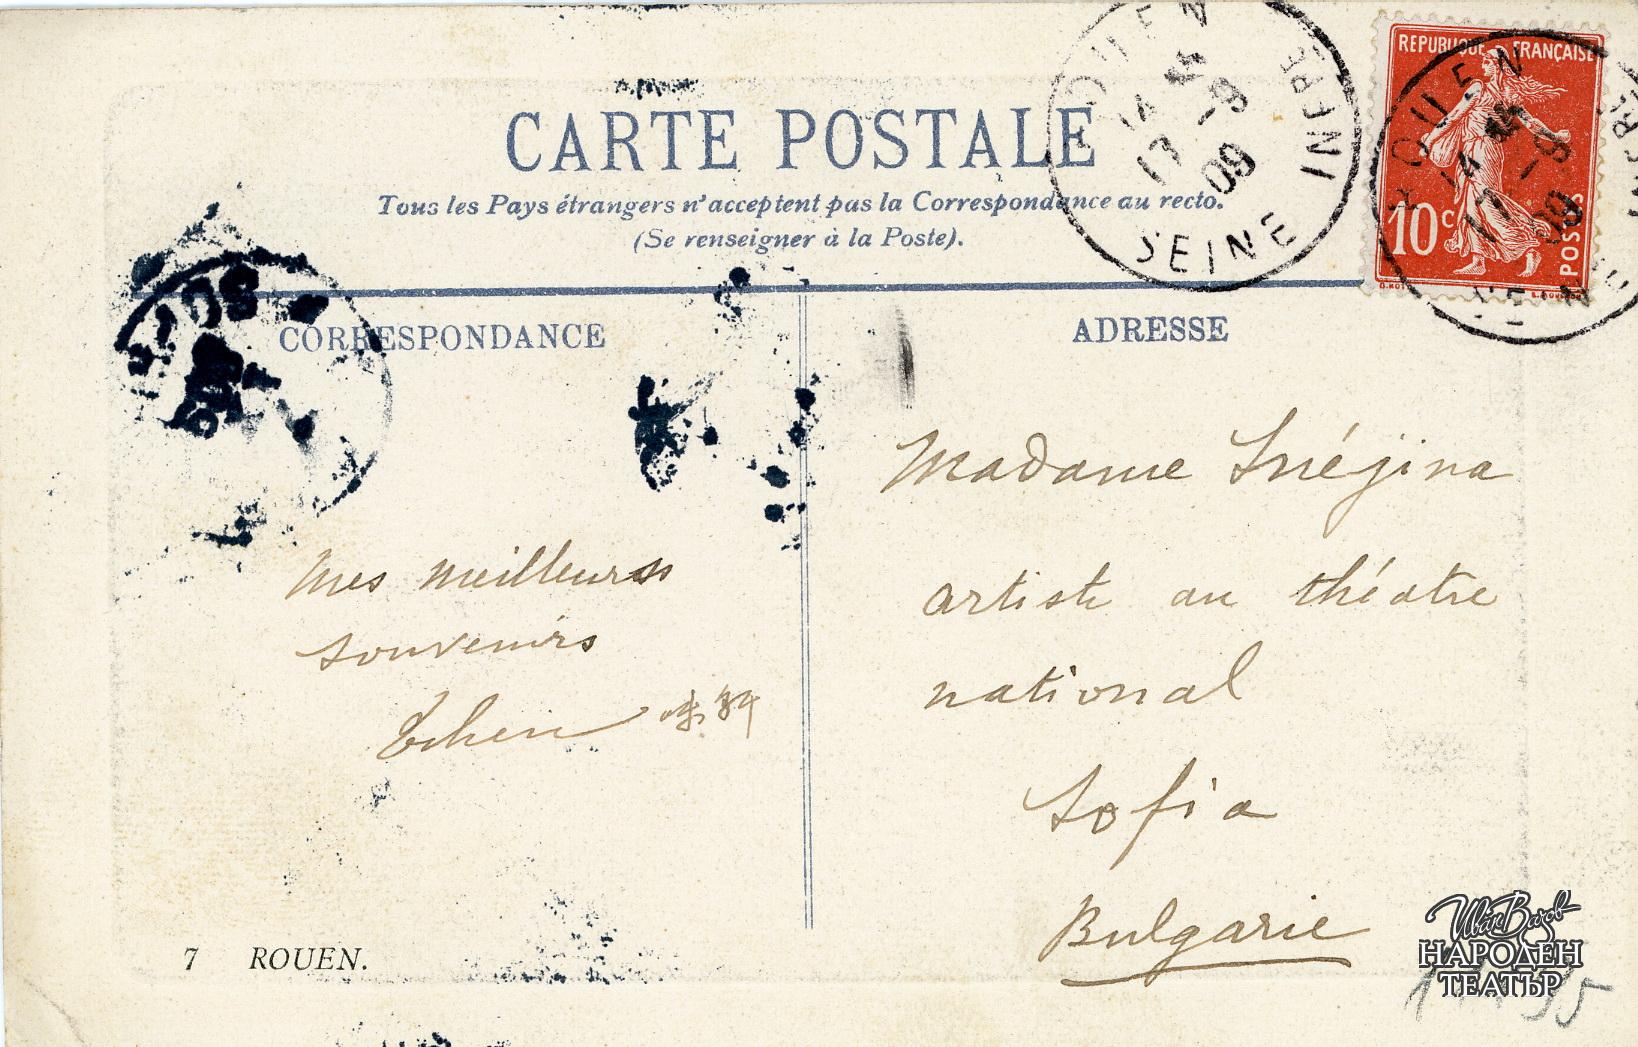 CARTE POSTALE
Tous les Pays étrangers n'acceptent pas la Correspondance au recto.
(Se renseigner à la Poste).
ROUEN
14
17 -9
09
SEINE INFRE
REPUBLIQUE FRANÇAISE
10c
POSTES
ROUEN
14
17 -9
09
CORRESPONDANCE
ADRESSE
Mes meilleurs
souvenirs
Madame Snéjina
artiste au théatre
national
Sofia
Bulgarie
7 ROUEN.
Иван Вазов
НАРОДЕН
ТЕАТЪР